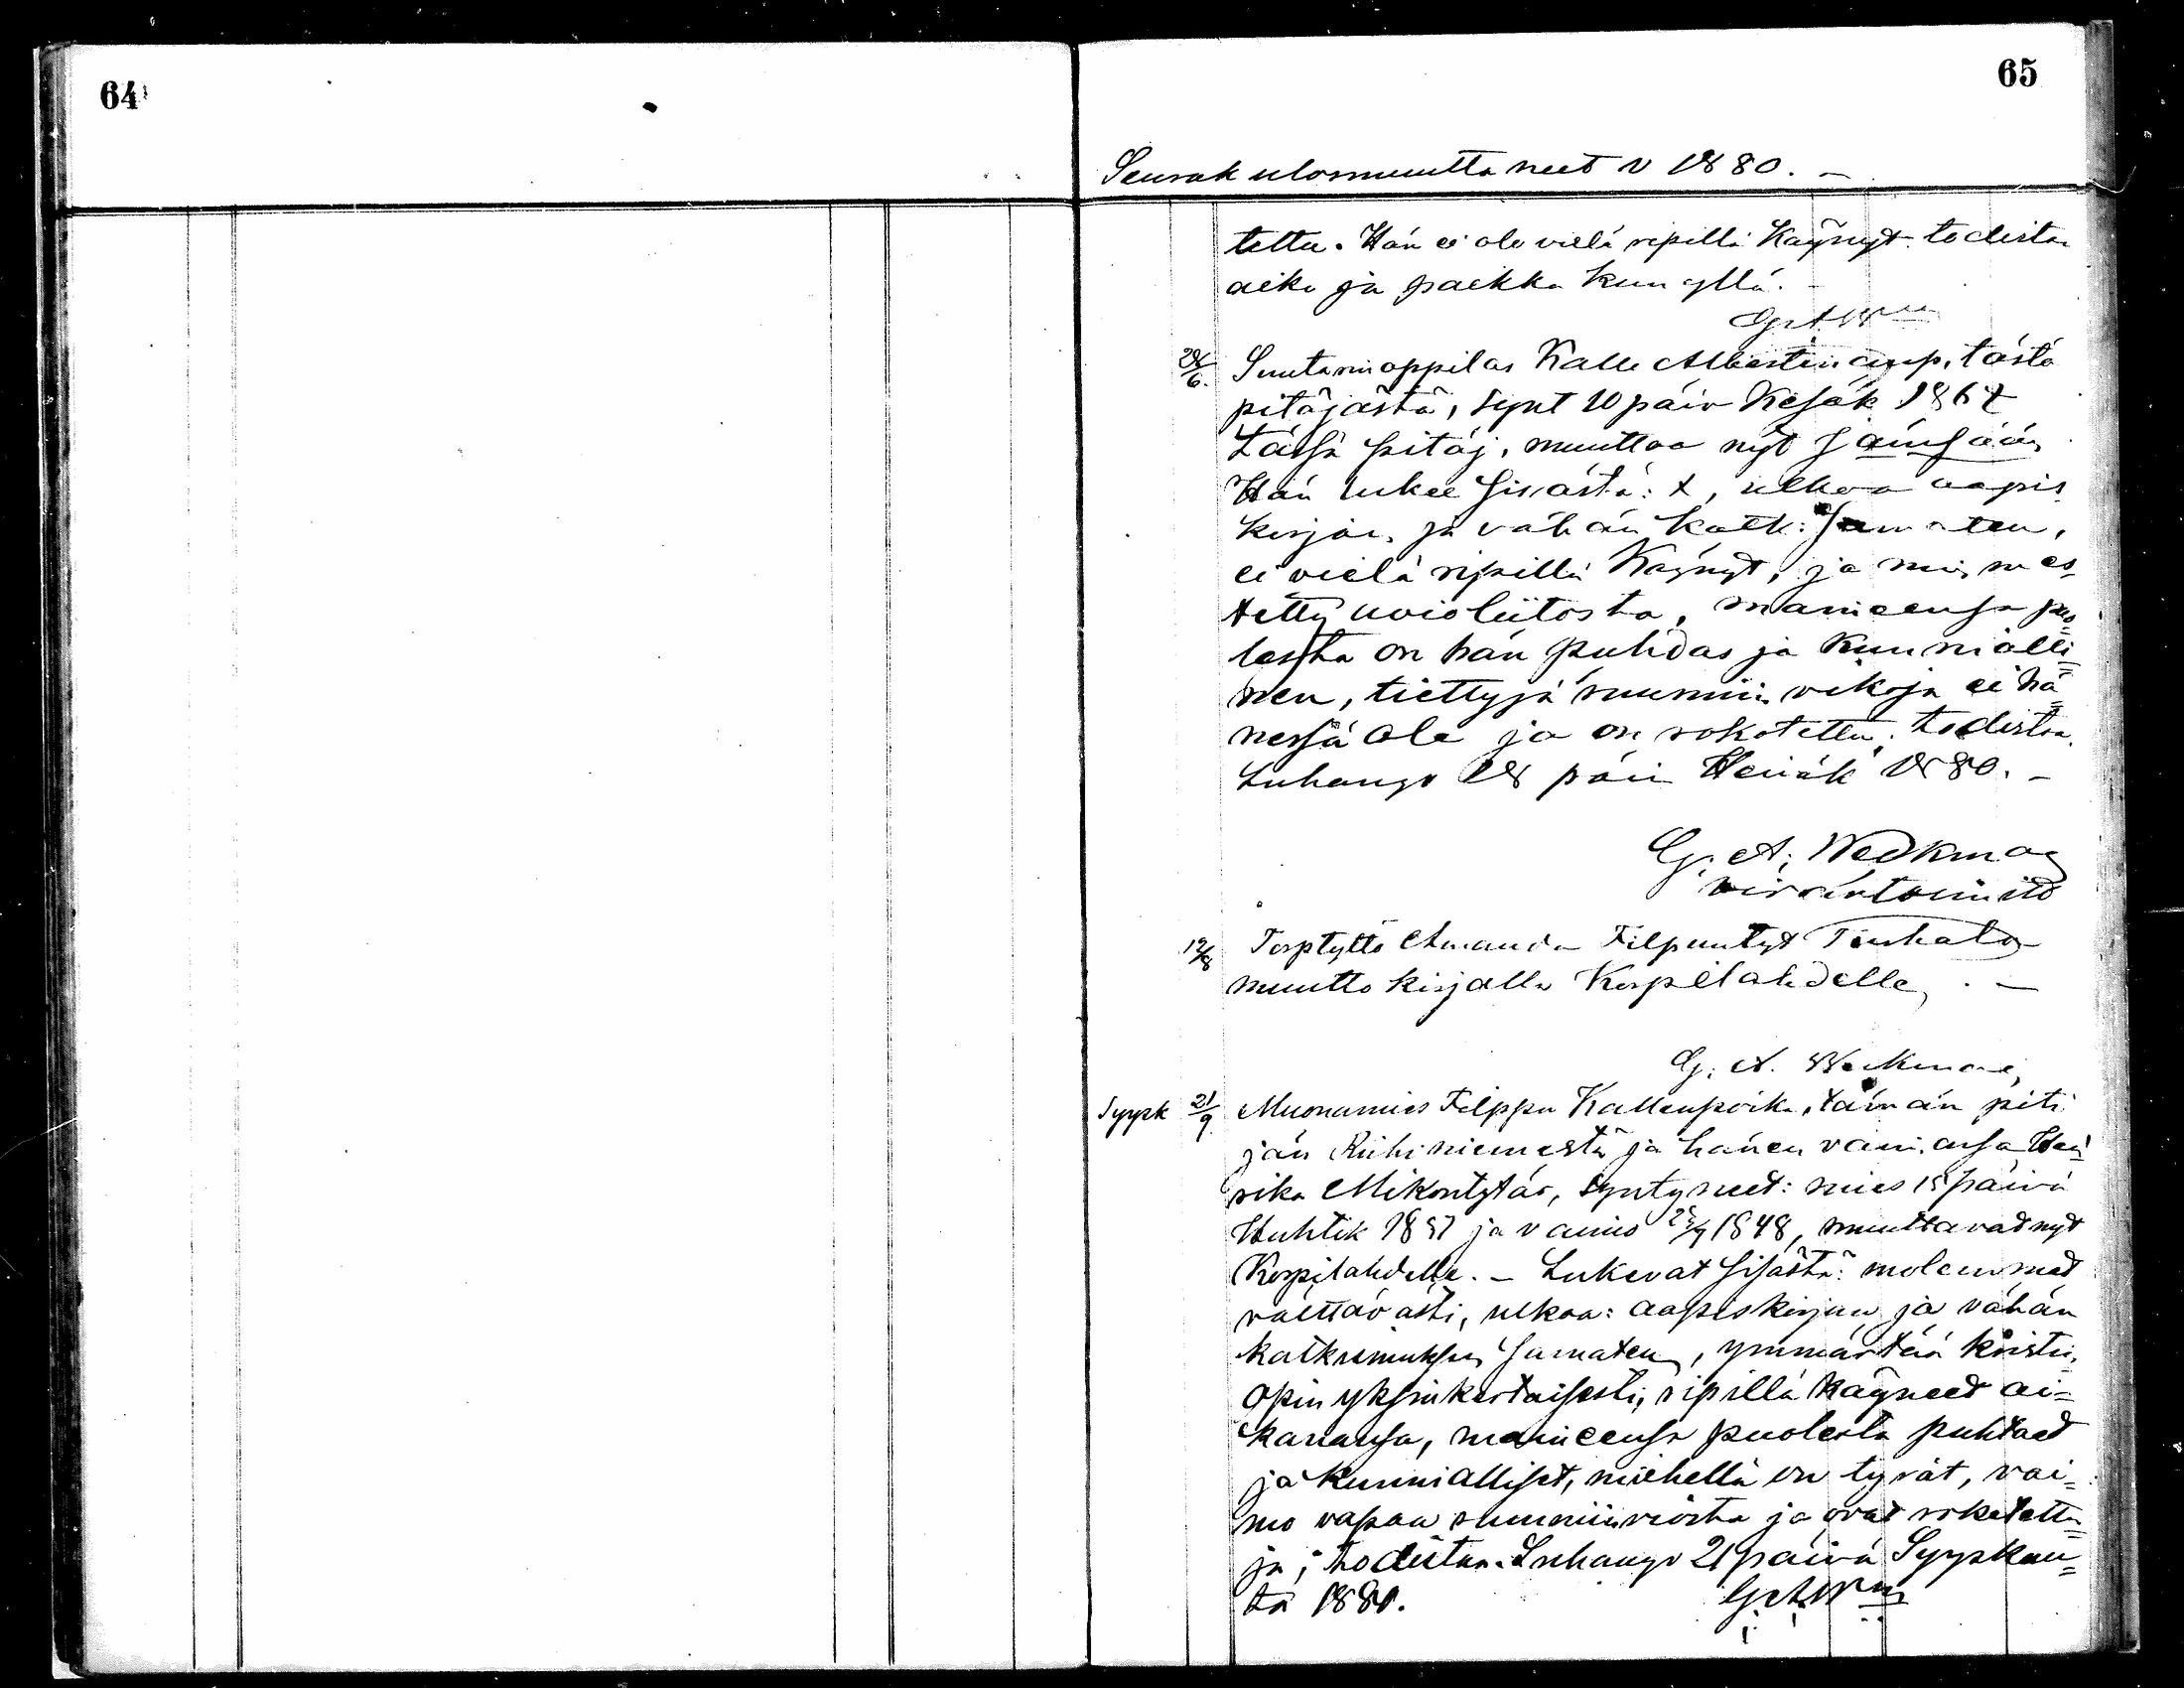 64
65
Seurak ulosmuuttaneet v 1880. –
tettu. Hän ei ole vielä ripillä Käynyt. todistaa
aika ja paikka kun yllä. –
G A W
28/6. Suutarin oppilas Kalle Albertinanp. tästä
pitäjästä, synt 10 päiv Kesäk 1867
tässä pitäj. muuttaa nyt Jämsään
Hän lukee sisästä: x, ulkoa aapis
kirjan ja vähän katk: samaten,
ei vielä ripillä Käynyt, ja niin es-
tetty avioliitosta, maineensa puo=
lesta on hän puhdas ja kunnialli=
nen, tiettyjä ruumiin vikoja ei hä=
nessä ole ja on rokotettu. todistaa.
Luhango 28 päiv Heinäk 1880. –
G. A. Weckman
viran toimit
12/8 Torptyttö Amanda Filpuntyt Tuhala
muutto kirjalla Korpilahdelle. –
G. A. Weckman
Syysk 21/9 Muonamies Filppu Kallenpoika, tämän pitä
jän Riihiniemestä ja hänen vaimonsa Hen
rika Mikontytär, syntyneet: mies 15 päivä
Huhtik 1857 ja vaimo 1848, muuttavat nyt
Korpilahdelle. – Lukevat sisästä: molemmat
välttävästi, ulkoa: aapiskirjan ja vähän
katkismuksen samaten, ymmärtää kristin
opin yksinkertaisesti, ripillä käyneet ai=
kanansa, maineensa puolesta puhtaat
ja kunnialliset, miehellä on tyrät, vai=
mo vapaa ruumiinviosta ja ovat rokotettu=
ja; todistaa. Luhango 21 päivä Syyskuu=
ta 1880.
G A W